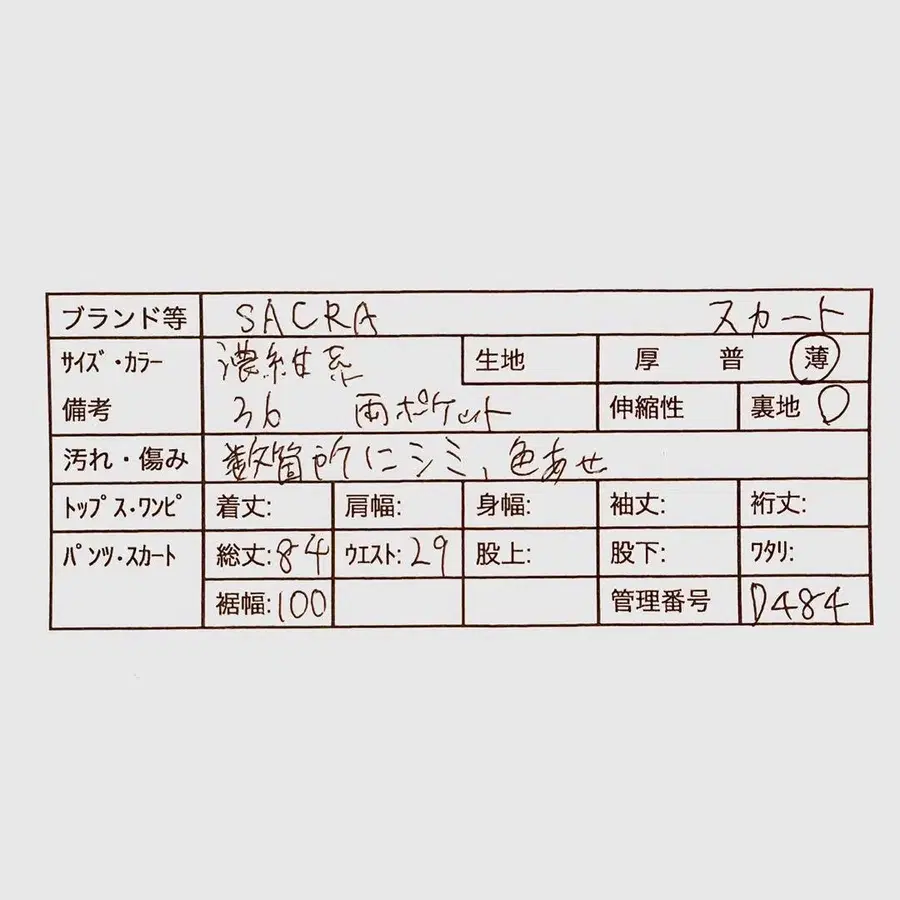 ブランド等 SACRA スカート
サイズ・カラー 濃紺系 生地 厚 普 薄
備考 36 両ポケット 伸縮性 裏地 ○
汚れ・傷み 数箇所にシミ、色あせ
トップス・ワンピ 着丈: 肩幅: 身幅: 袖丈: 裄丈:
パンツ・スカート 総丈:84 ウエスト:29 股上: 股下: ワタリ:
裾幅:100 管理番号 D484